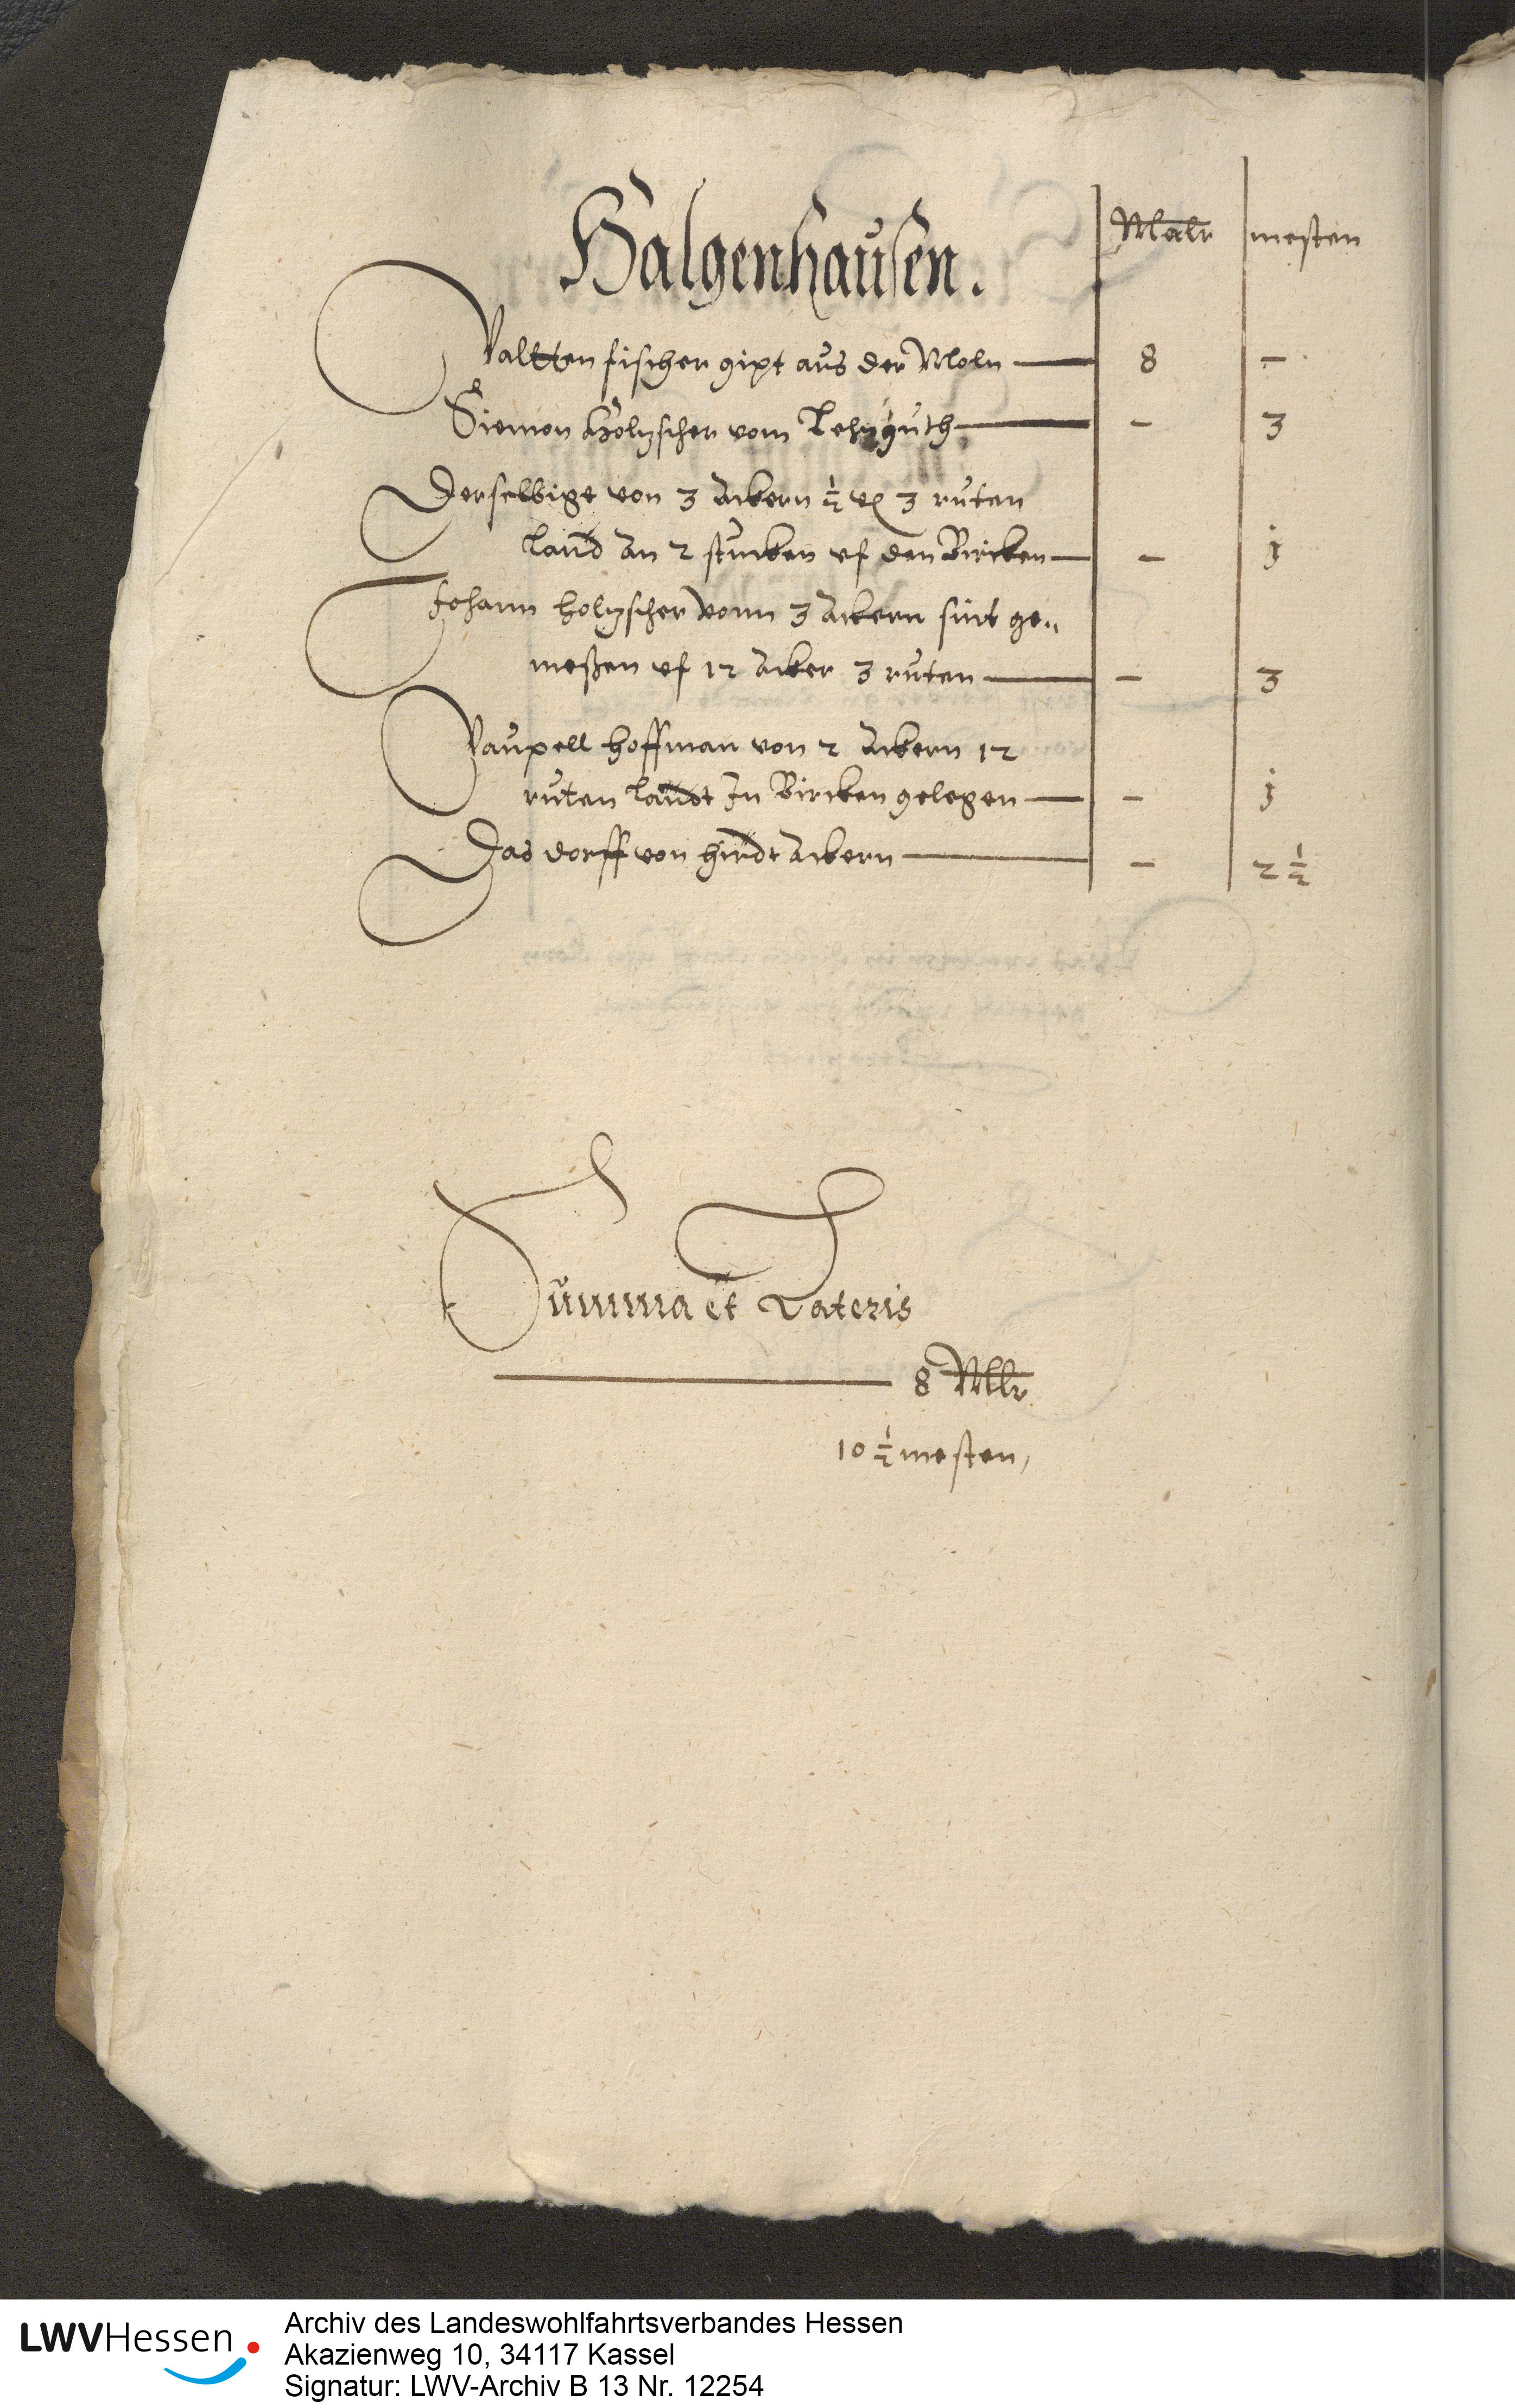 Halgenhausen. Malr mesten
Valtten fischer gipt aus der Moln 8 -
Siemon Holzscher vom Lehnguth - 3
Derselbige von 3 Ackern ½ 3 ruten
land An 2 stucken uf den Bircken - j
Johann holzscher vonn 3 Ackern sint ge„
meßen uf 12 Acker 3 ruten - 3
Vaupell hoffman von 2 Ackern 12
ruten landt In Bircken gelegen - j
Das dorff von hirdt Ackern - 2½
Summa et Lateris
8 Mlr
10½ mesten,
LWVHessen
Archiv des Landeswohlfahrtsverbandes Hessen
Akazienweg 10, 34117 Kassel
Signatur: LWV-Archiv B 13 Nr. 12254